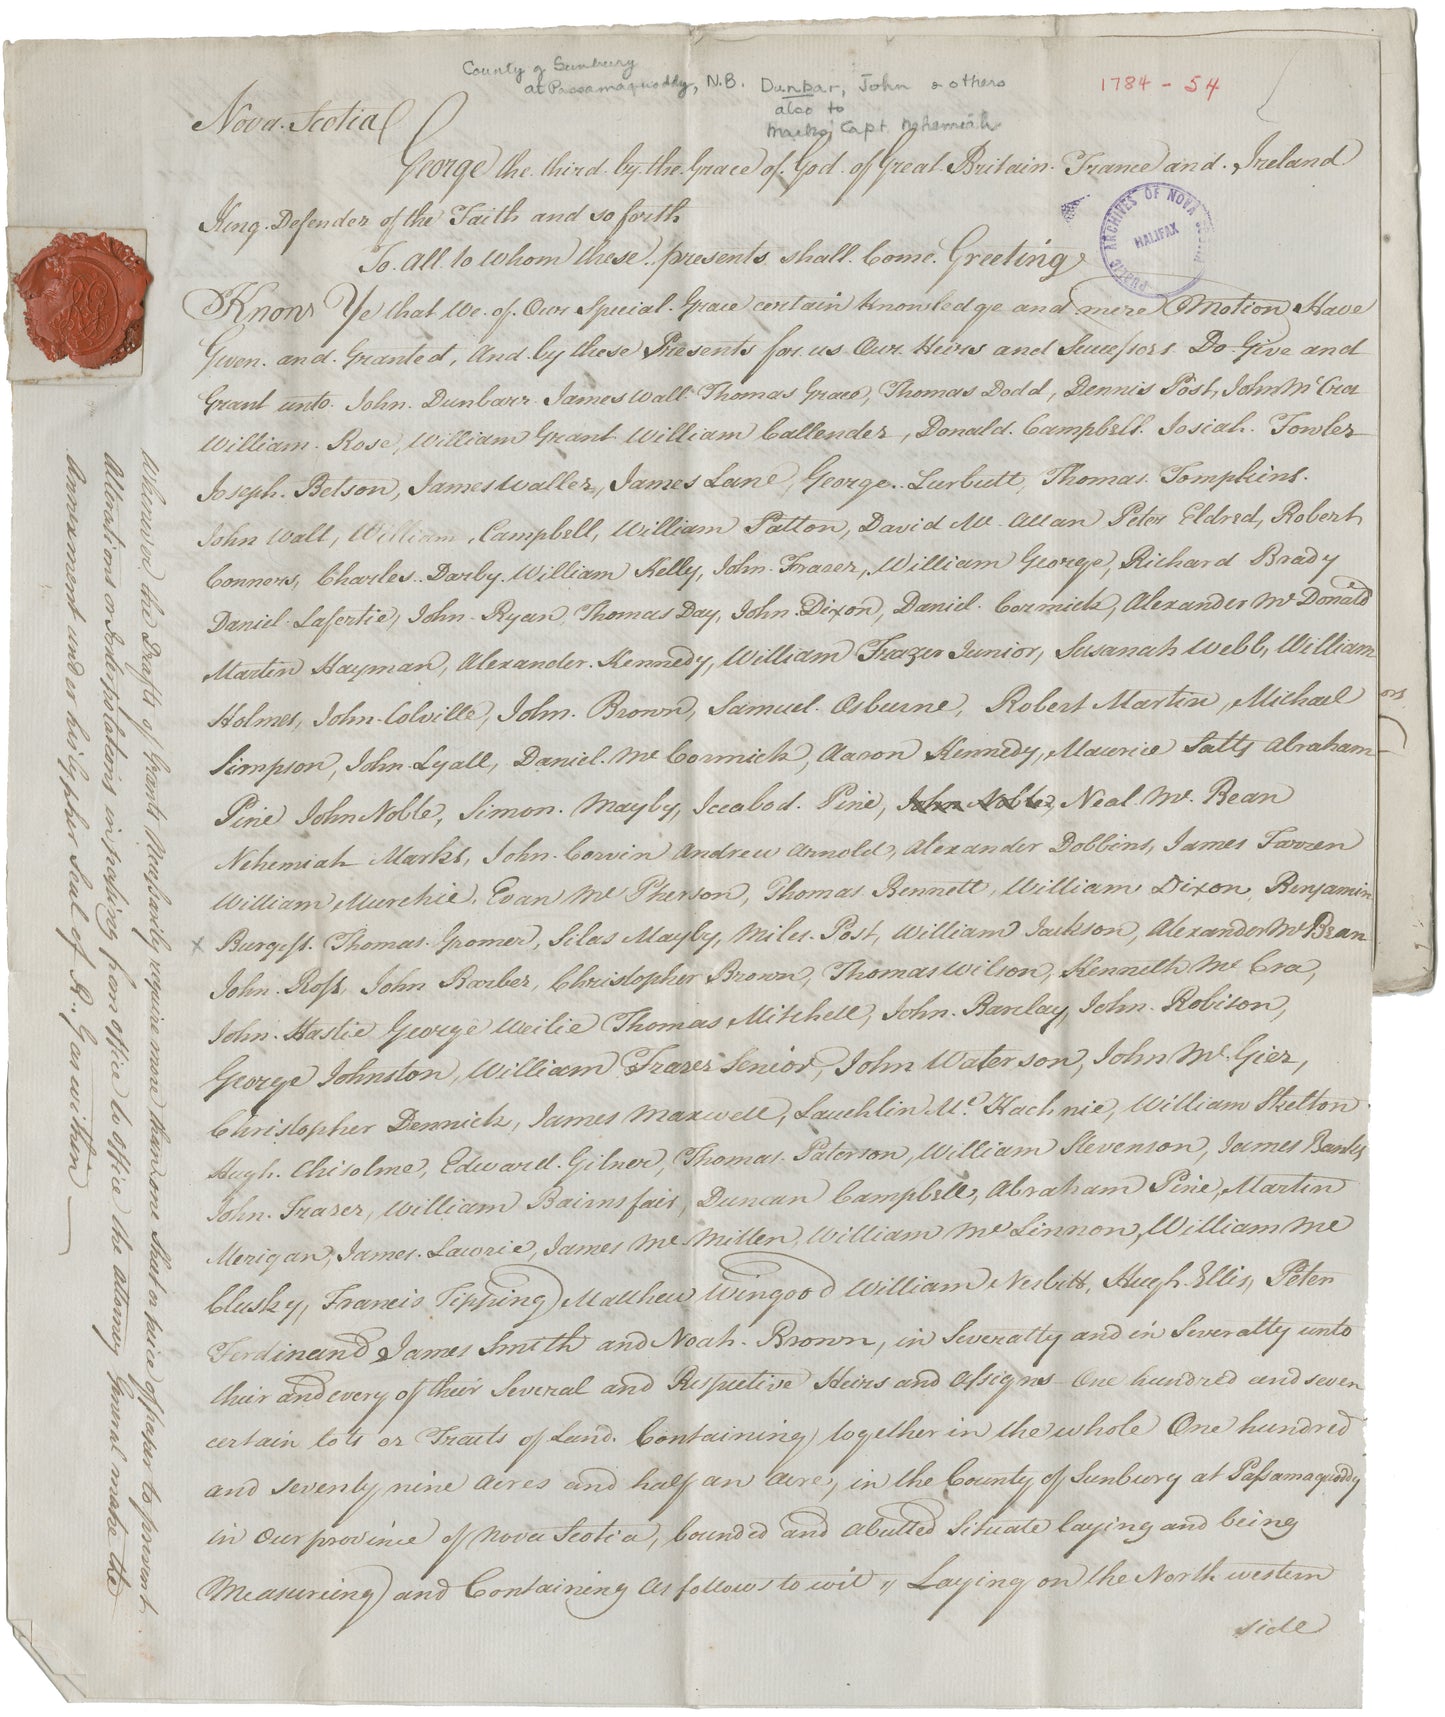 County of Sunbury
at Passamaquoddy, N.B. Dunbar, John & others
also to
Marks, Capt. Nehemiah
1784 - 54
Nova Scotia
George the third by the Grace of God of Great Britain France and Ireland
King Defender of the Faith and so forth
To All to whom these presents shall Come Greeting
PUBLIC ARCHIVES OF NOVA SCOTIA
HALIFAX
Know Ye that We of Our Special Grace certain knowledge and mere Motion Have
Given and Granted, And by these Presents for us Our Heirs and Successors Do Give and
Grant unto John Dunbarr James Wall Thomas Grace, Thomas Dodd, Dennis Post, John McCra
William Rose, William Grant William Callender, Donald Campbell Josiah Fowler
Joseph Betson, James Waller, James Lane, George Lurbutt, Thomas Tompkins
John Wall, William Campbell, William Patton, David Mc Allan Peter Eldred, Robert
Conners, Charles Darby William Kelly, John Frazer, William George, Richard Brady
Daniel Lafertie, John Ryan Thomas Day, John Dixon, Daniel Cormick, Alexander McDonald
Martin Hayman, Alexander Kennedy, William Frazer Junior, Susanah Webb, William
Holmes, John Colville, John Brown, Samuel Osburne, Robert Martin, Michael
Simpson, John Lyall, Daniel McCormick, Aaron Kennedy, Maurice Salts Abraham
Pine John Noble, Simon Mayby, Iccabod Pine, John Noble, Neal Mc Bean
Nehemiah Marks, John Corvin Andrew Arnold, Alexander Dobbins, James Farren
William Murchie, Evan Mc Pherson, Thomas Bennett, William Dixon, Benjamin
x Burgess Thomas Gromer, Silas Mayby, Miles Post, William Jackson, Alexander McBean
John Ross, John Barber, Christopher Brown, Thomas Wilson, Kenneth Mc Cra,
John Hastie George Weilie Thomas Mitchell, John Barclay, John Robison,
George Johnston, William Frazer Senior, John Waterson, John McGier,
Christopher Dennick, James Maxwell, Lauchlin Mc Hachnie, William Skelton
Hugh Chisolme, Edward Gilner, Thomas Paterson, William Stevenson, James Banks
John Frazer, William Bairnsfair, Duncan Campbell, Abraham Pine, Martin
Merigan, James Lawrie, James Mc Millen, William McLinnon, William Mc
Clusky, Francis Tipping Matthew Wingood William Nesbitt, Hugh Ellis, Peter
Ferdinand James Smith and Noah Brown, in Severalty and in Severalty unto
their and every of their Several and Respective Heirs and Assigns One hundred and seven
certain lots or Tracts of Land Containing together in the whole One hundred
and seventy nine Acres and half an Acre, in the County of Sunbury at Passamaquoddy
in Our province of Nova Scotia, bounded and abutted Situate laying and being
Measureing and Containing As follows to wit, Laying on the North western
side
Whenever the Drafts of Grants Necessarily require more than one Sheet or piece of paper to prevent
Alterations or Interpolations in passing from office to office the attorney General make the
Annexment under his Cypher Seal of R. G as within